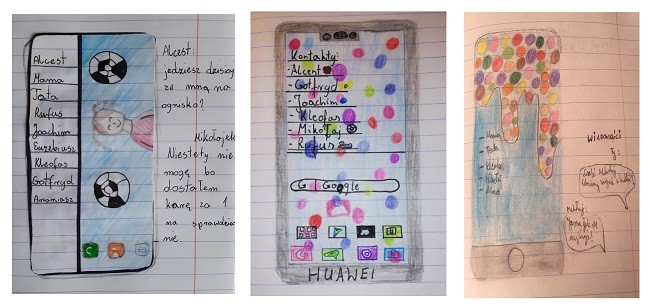 Alcest
Mama
Tata
Rufus
Joachim
Euzebiusz
Kleofas
Gotfryd
Ananiasz
Alcest:
jedziesz dzisiaj
ze mną na
ognisko?
Mikołajek:
Niestety nie
mogę bo
dostałem
karę za 1
na sprawdzia-
nie.
Kontakty:
-Alcent
-Gotfryd
-Joachim
-Kleofas
-Mikołaj
-Rufus
G Google
HUAWEI
- Mama
- Tata
Wiadomości
Ty: